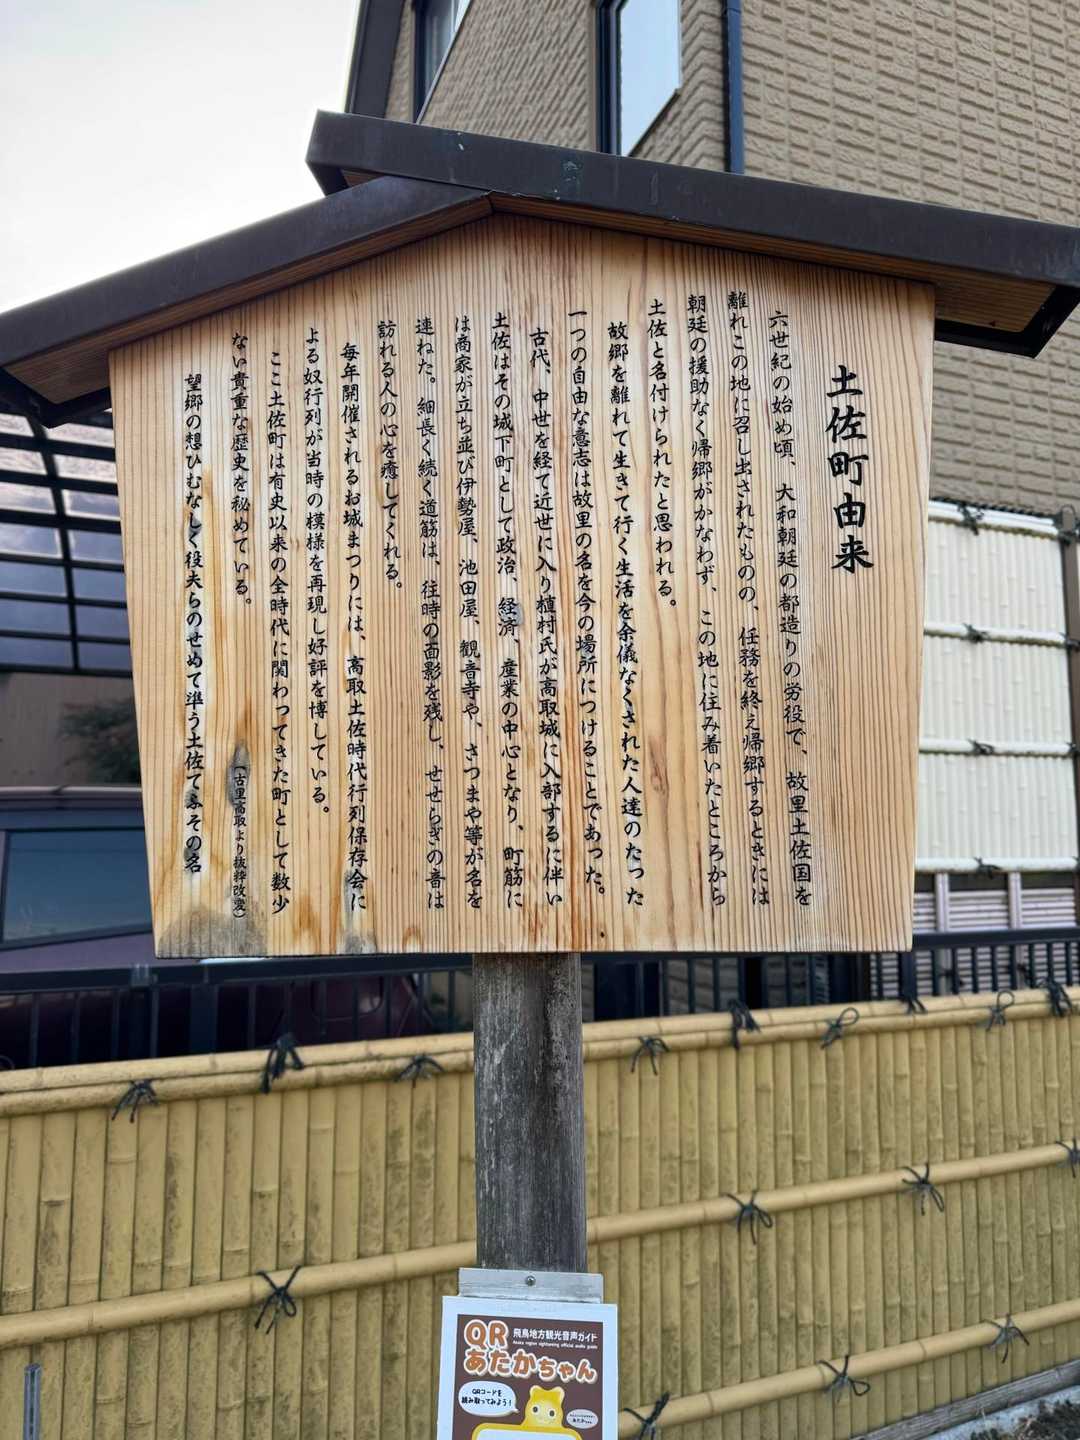 土佐町由来
六世紀の始め頃、大和朝廷の都造りの労役で、故里土佐国を
離れこの地に召し出されたものの、任務を終え帰郷するときには
朝廷の援助なく帰郷がかなわず、この地に住み着いたところから
土佐と名付けられたと思われる。
故郷を離れて生きて行く生活を余儀なくされた人達のたった
一つの自由な意志は故里の名を今の場所につけることであった。
古代、中世を経て近世に入り植村氏が高取城に入部するに伴い
土佐はその城下町として政治、経済、産業の中心となり、町筋に
は商家が立ち並び伊勢屋、池田屋、観音寺や、さつまや等が名を
連ねた。細長く続く道筋は、往時の面影を残し、せせらぎの音は
訪れる人の心を癒してくれる。
毎年開催されるお城まつりには、高取土佐時代行列保存会に
よる奴行列が当時の模様を再現し好評を博している。
ここ土佐町は有史以来の全時代に関わってきた町として数少
ない貴重な歴史を秘めている。
(古里高取より抜粋改変)
望郷の想ひむなしく役夫らのせめて準う土佐てふその名
QR
飛鳥地方観光音声ガイド
Asuka region sightseeing official audio guide
あたかちゃん
QRコードを
読み取ってみよう!
あたかちゃん